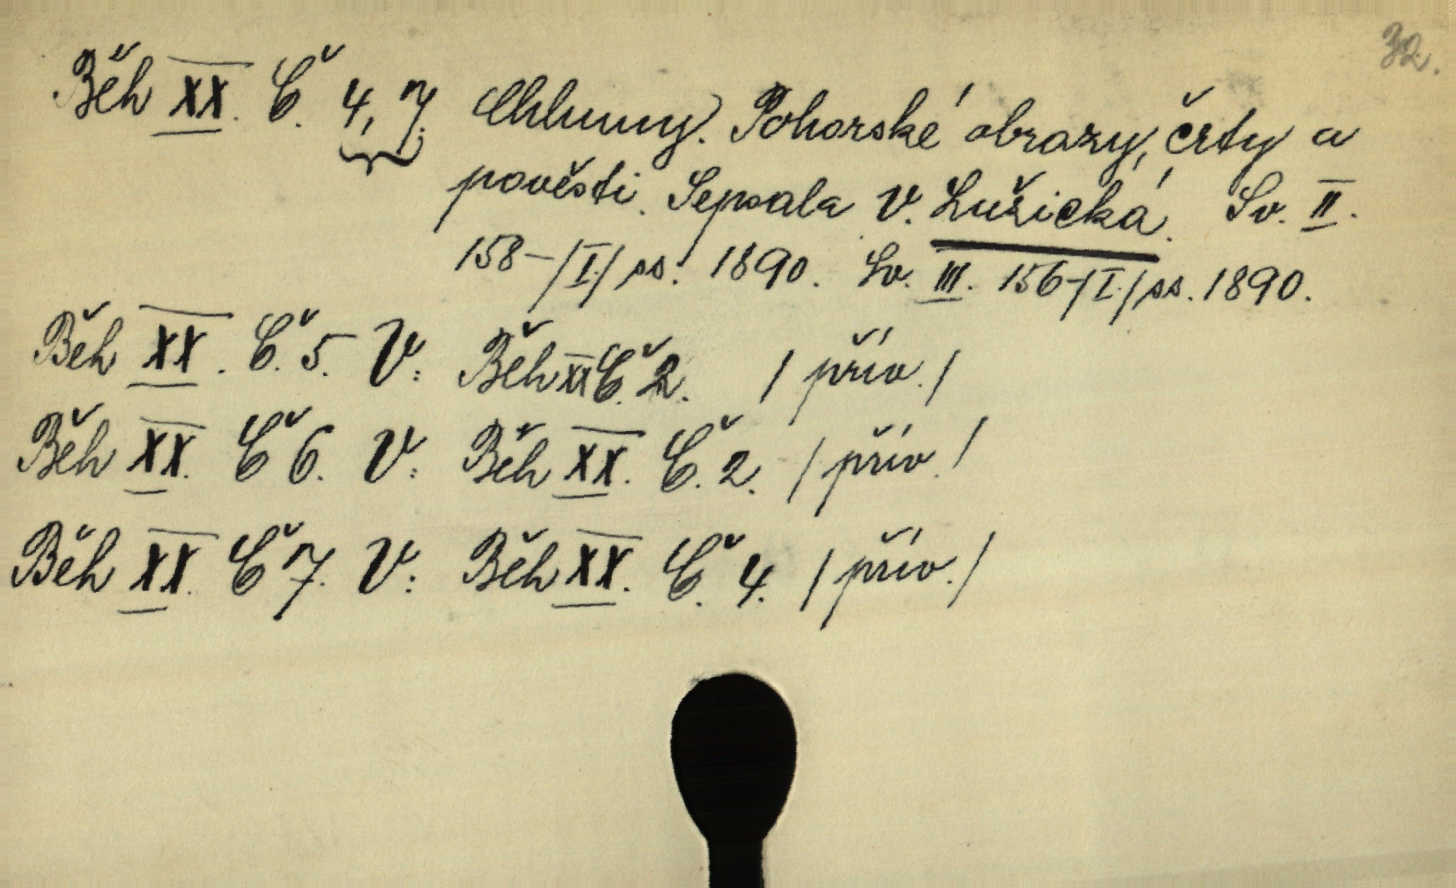 32.
Běh XX. Č. 4, 7. Chlumy. Pohorské obrazy, črty a
pověsti. Sepsala V. Lužická. Sv. II.
158-/I./ ss. 1890. Sv. III. 156-/I./ ss. 1890.
Běh XX. Č. 5. V: Běh XX Č. 2. /přív./
Běh XX. Č 6. V: Běh XX. Č. 2. /přív./
Běh XX. Č 7. V: Běh XX. Č. 4. /přív./